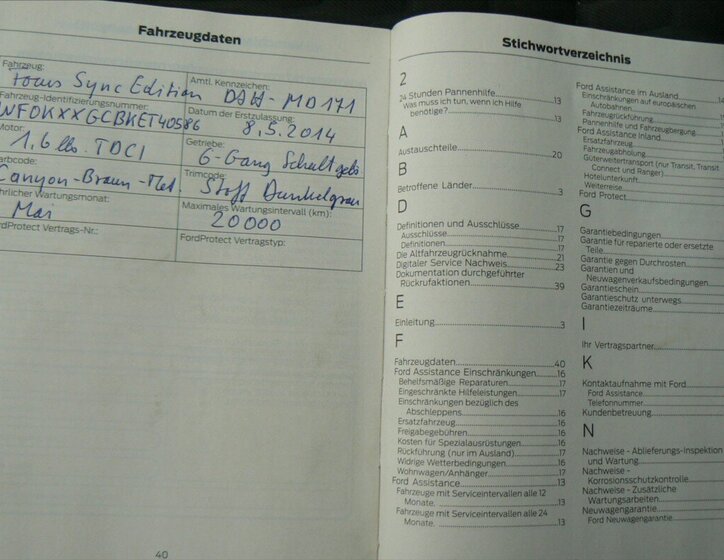 Fahrzeugdaten
Fahrzeug:
Focus Sync Edition
Amtl. Kennzeichen:
DAH-MD171
Fahrzeug-Identifizierungsnummer:
WF0KXXGCBKET40586
Datum der Erstzulassung:
8.5.2014
Motor:
1,6 lb. TDCI
Getriebe:
6-Gang Schaltgeb
arbcode:
Canyon-Braun-Met.
Trimcode:
Stoff Dunkelgrau
hrlicher Wartungsmonat:
Mai
Maximales Wartungsintervall (km):
20000
ordProtect Vertrags-Nr.:
FordProtect Vertragstyp:
40
Stichwortverzeichnis
2
24 Stunden Pannenhilfe 13
Was muss ich tun, wenn ich Hilfe
benötige? 13
A
Austauschteile 20
B
Betroffene Länder 3
D
Definitionen und Ausschlüsse 17
Ausschlüsse 17
Definitionen 17
Die Altfahrzeugrücknahme 21
Digitaler Service Nachweis 23
Dokumentation durchgeführter
Rückrufaktionen 39
E
Einleitung 3
F
Fahrzeugdaten 40
Ford Assistance Einschränkungen 16
Behelfsmäßige Reparaturen 17
Eingeschränkte Hilfeleistungen 17
Einschränkungen bezüglich des
Abschleppens 16
Ersatzfahrzeug 16
Freigabegebühren 16
Kosten für Spezialausrüstungen 16
Rückführung (nur im Ausland) 17
Widrige Wetterbedingungen 16
Wohnwagen/Anhänger 17
Ford Assistance 13
Fahrzeuge mit Serviceintervallen alle 12
Monate. 13
Fahrzeuge mit Serviceintervallen alle 24
Monate. 13
Ford Assistance im Ausland
Einschränkungen auf europäischen
Autobahnen
Fahrzeugrückführung
Pannenhilfe und Fahrzeugbergung
Ford Assistance Inland
Ersatzfahrzeug
Fahrzeugabholung
Güterweitertransport (nur Transit, Transit
Connect und Ranger)
Hotelunterkunft
Weiterreise
Ford Protect
G
Garantiebedingungen
Garantie für reparierte oder ersetzte
Teile
Garantie gegen Durchrosten
Garantien und
Neuwagenverkaufsbedingungen
Garantieschein
Garantieschutz unterwegs
Garantiezeiträume
I
Ihr Vertragspartner
K
Kontaktaufnahme mit Ford
Ford Assistance
Telefonnummer
Kundenbetreuung
N
Nachweise - Ablieferungs-Inspektion
und Wartung
Nachweise -
Korrosionsschutzkontrolle
Nachweise - Zusätzliche
Wartungsarbeiten
Neuwagengarantie
Ford Neuwagengarantie